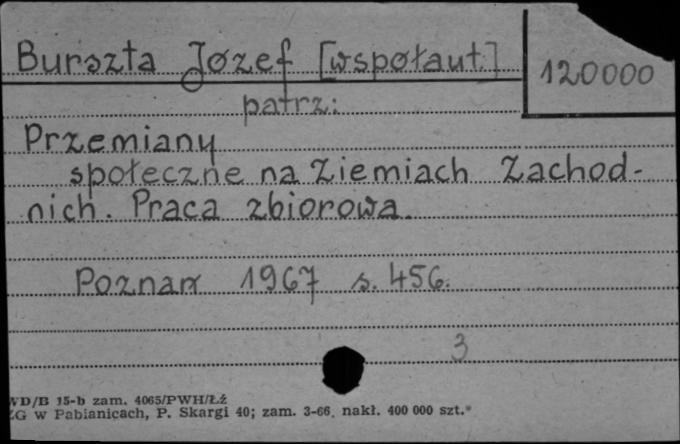 Burszta Józef [współaut.]
120000
patrz:
Przemiany
społeczne na Ziemiach Zachod-
nich. Praca zbiorowa.
Poznań 1967 s. 456.
3
WD/B 15-b zam. 4065/PWH/Łź
ZG w Pabianicach, P. Skargi 40; zam. 3-66. nakł. 400 000 szt.